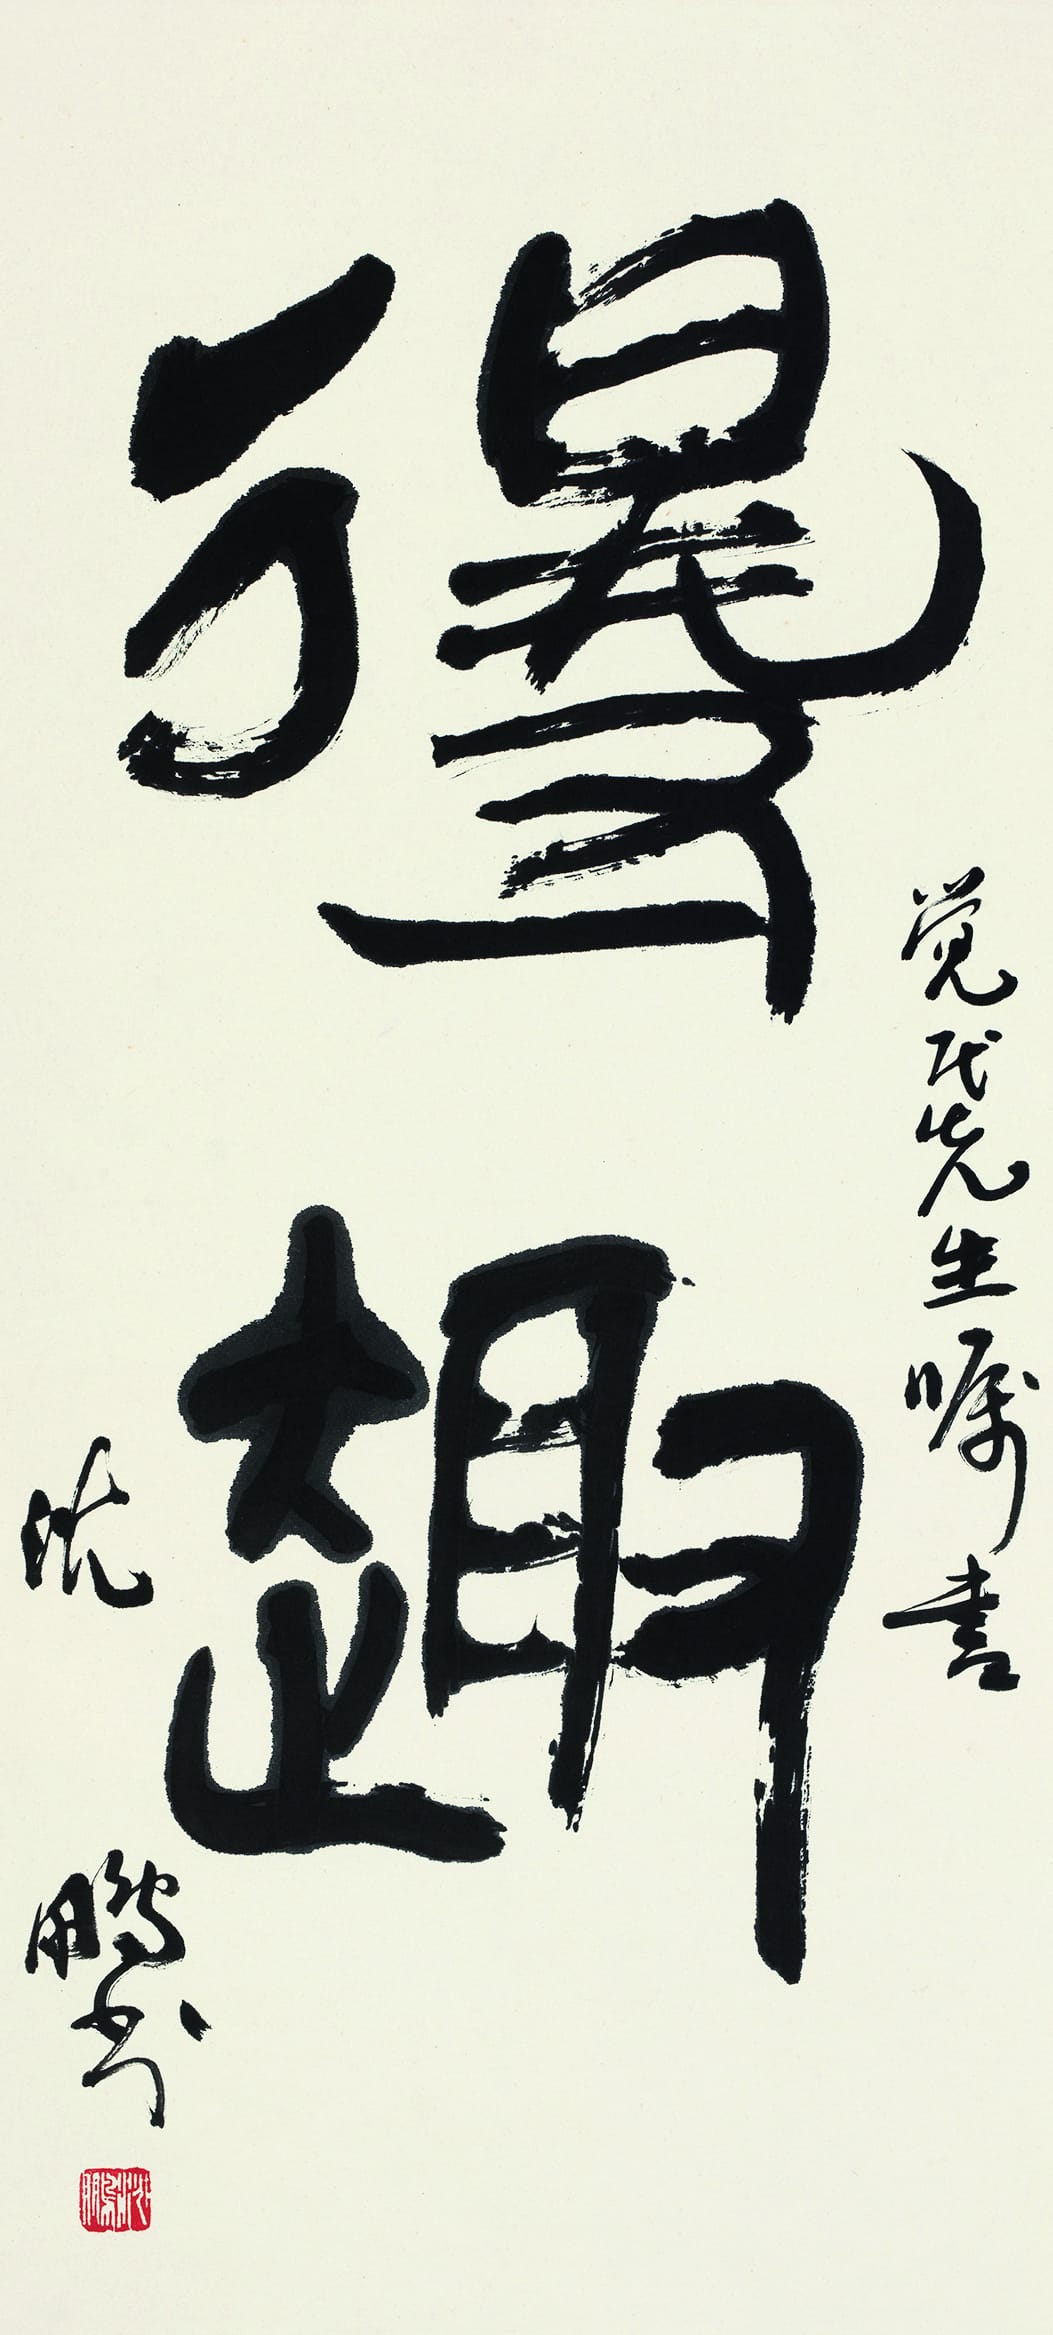 得趣
觉民先生嘱书
沈鹏书
沈鹏